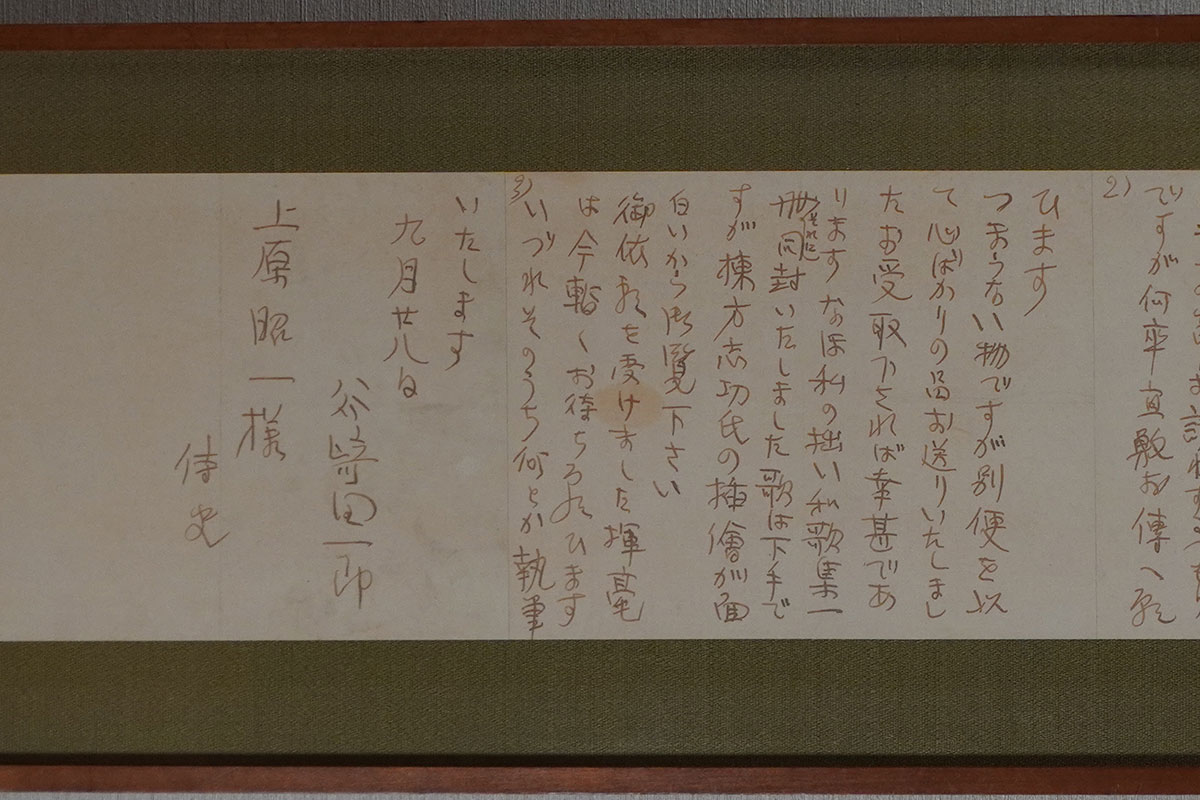 ですが何卒宜敷お傳へ願
2)
ひます
つまらない物ですが別便を以
て心ばかりの品お送りいたしまし
たお受取下されば幸甚であ
ります なほ私の拙い和歌集一
冊それに同封いたしました歌は下手で
すが棟方志功氏の插繪が面
白いから御覧下さい
御依頼を受けました揮毫
は今暫くお待ち願ひます
いづれそのうち何とか執筆
3)
いたします
九月廿八日
谷崎潤一郎
上原昭一様
侍史